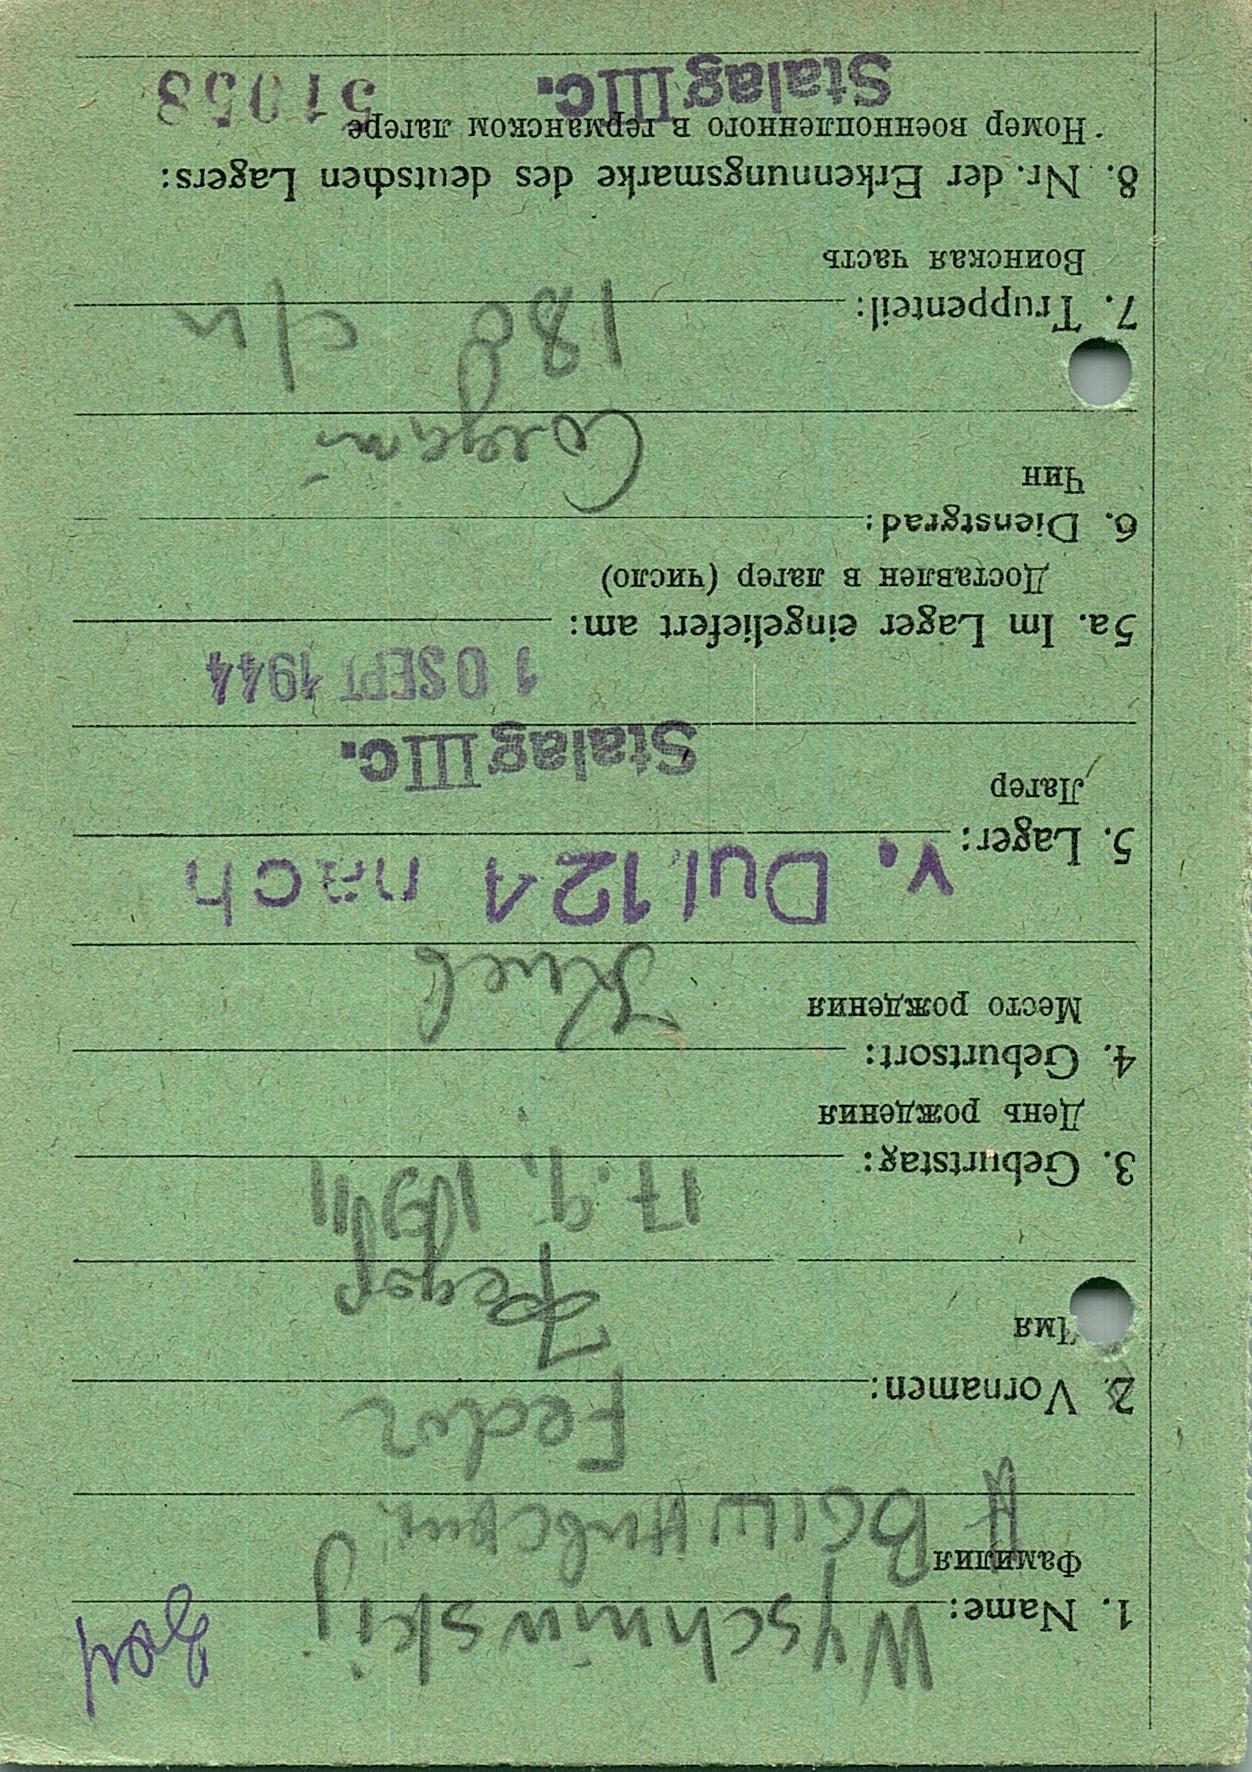 1. Name: Wyschniwskij
Фамилия Вышнивский
2. Vornamen: Fedor
Имя Федор
3. Geburtstag: 17.9.
День рождения
4. Geburtsort:
Место рождения Киев
5. Lager: v. Dul 124 nach
Лагер
Stalag III c.
10 SEPT 1944
5a. Im Lager eingeliefert am:
Доставлен в лагер (число)
6. Dienstgrad:
Чин
7. Truppenteil: 180
Воинская часть
8. Nr. der Erkennungsmarke des deutschen Lagers:
Номер военнопленного в германском лагере
Stalag III c. 51958